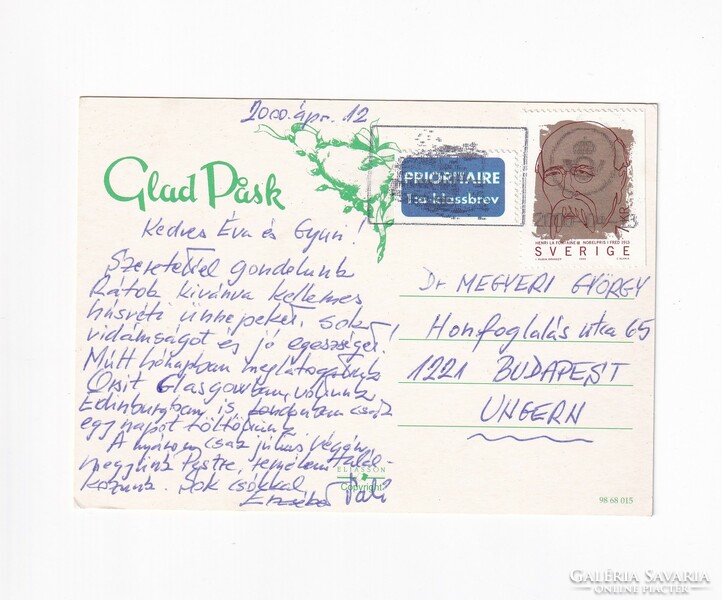 2000. ápr. 12
Glad Påsk
PRIORITAIRE
1:a-klassbrev
HENRI LA FONTAINE NOBELPRIS I FRED 1913
SVERIGE
Kedves Éva és Gyuri!
Szeretettel gondolunk
Rátok kívánva kellemes
húsvéti ünnepeket, sok
vidámságot és jó egészséget!
Múlt hónapban meglátogattuk
Orsit Glasgowban, voltunk
Edinburgban is, Londonban csak
egy napot töltöttünk
A nyáron csak július végén
megyünk Pestre, remélem talál-
kozunk. Sok csókkal
Erzsébet Pali
Dr MEGYERI GYÖRGY
Honfoglalás utca 65
1221 BUDAPEST
UNGERN
ELIASSON
Copyright
98 68 015
GALÉRIA SAVARIA
ONLINE PIACTÉR